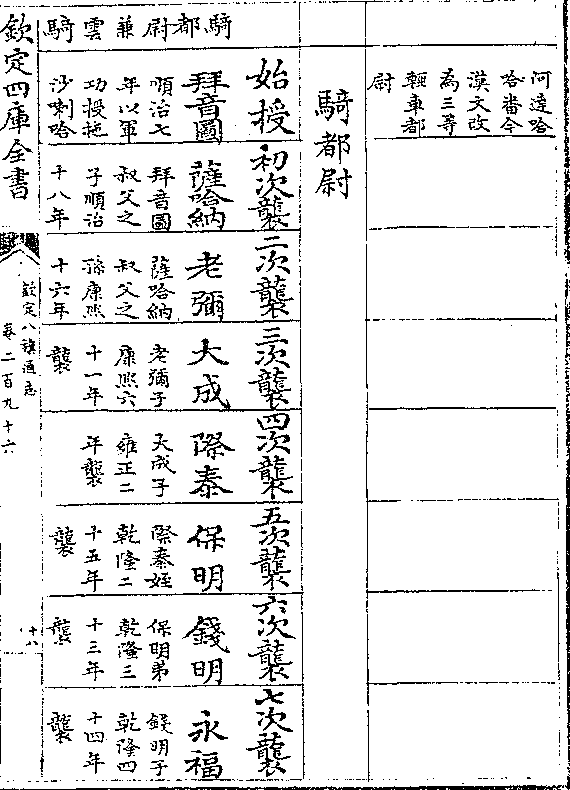 阿達哈
哈番今
漢文改
為三等
輕車都
尉
騎都尉
始授
初次襲
二次襲
三次襲
四次襲
五次襲
六次襲
七次襲
騎都尉兼雲騎
拜音圖
順治七
年以軍
功授拖
沙喇哈
薩哈納
拜音圖
叔父之
子順治
十八年
老彌
薩哈納
叔父之
孫康熙
十六年
大成
老彌子
康熙六
十一年
襲
際泰
大成子
雍正二
年襲
保明
際泰姪
乾隆二
十五年
襲
錢明
保明弟
乾隆三
十三年
襲
永福
錢明子
乾隆四
十四年
襲
欽定四庫全書
欽定八旗通志
卷二百九十六
十八